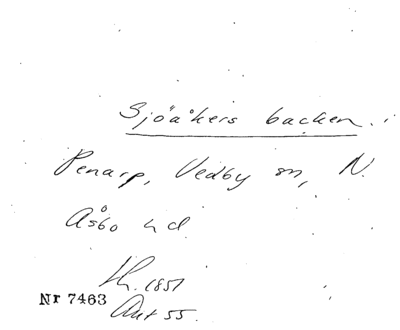 Sjöåkers backen.
Penarp, Vedby sn, N.
Åsbo hd
Lh. 1851
Nr 7463
Akt 55.